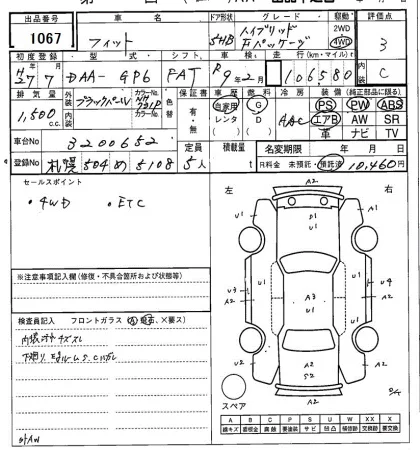 出品番号 車名 ドア形状 グレード 駆動 評価点
1067 フィット 5HB ハイブリッド Fパッケージ 2WD 4WD 3
初度登録 型式 シフト 車検 走行(km・マイル) 内装
H27年7月 DAA-GP6 FAT R 年2月 106580 C
排気量 外装 カラーNo. 色替 保証書 車歴 燃料 冷房 装備(純正部品に限る)
1,500 c.c. ブラックパール 内装 カラーNo. 有・無 自家用 レンタ G D AAC PS PW ABS
エアB AW SR
革 ナビ TV
車台No 3200652 定員 積載量 名変期限 年 月 日
登録No 札幌 504 め 5108 5人 t R料金 未預託・預託済 10,460円
セールスポイント
・4WD ・ETC
左 右
A2
U1 D1 U1
A2 U1
U3 A2 U1 A3 U1 U4 A2
U1
U2 A2 S2 A2
A2
スペア
※注意事項記入欄(修復・不具合箇所および状態等)
検査員記入 フロントガラス(A 飛石、×要ス)
内装汚れキズスレ
下廻り、EgルームS、Cハガレ
外AW
A B C P S U W X XX
線キズ 直板金 腐蝕 要塗装 サビ 凹凸 補修跡 要交換 交換済